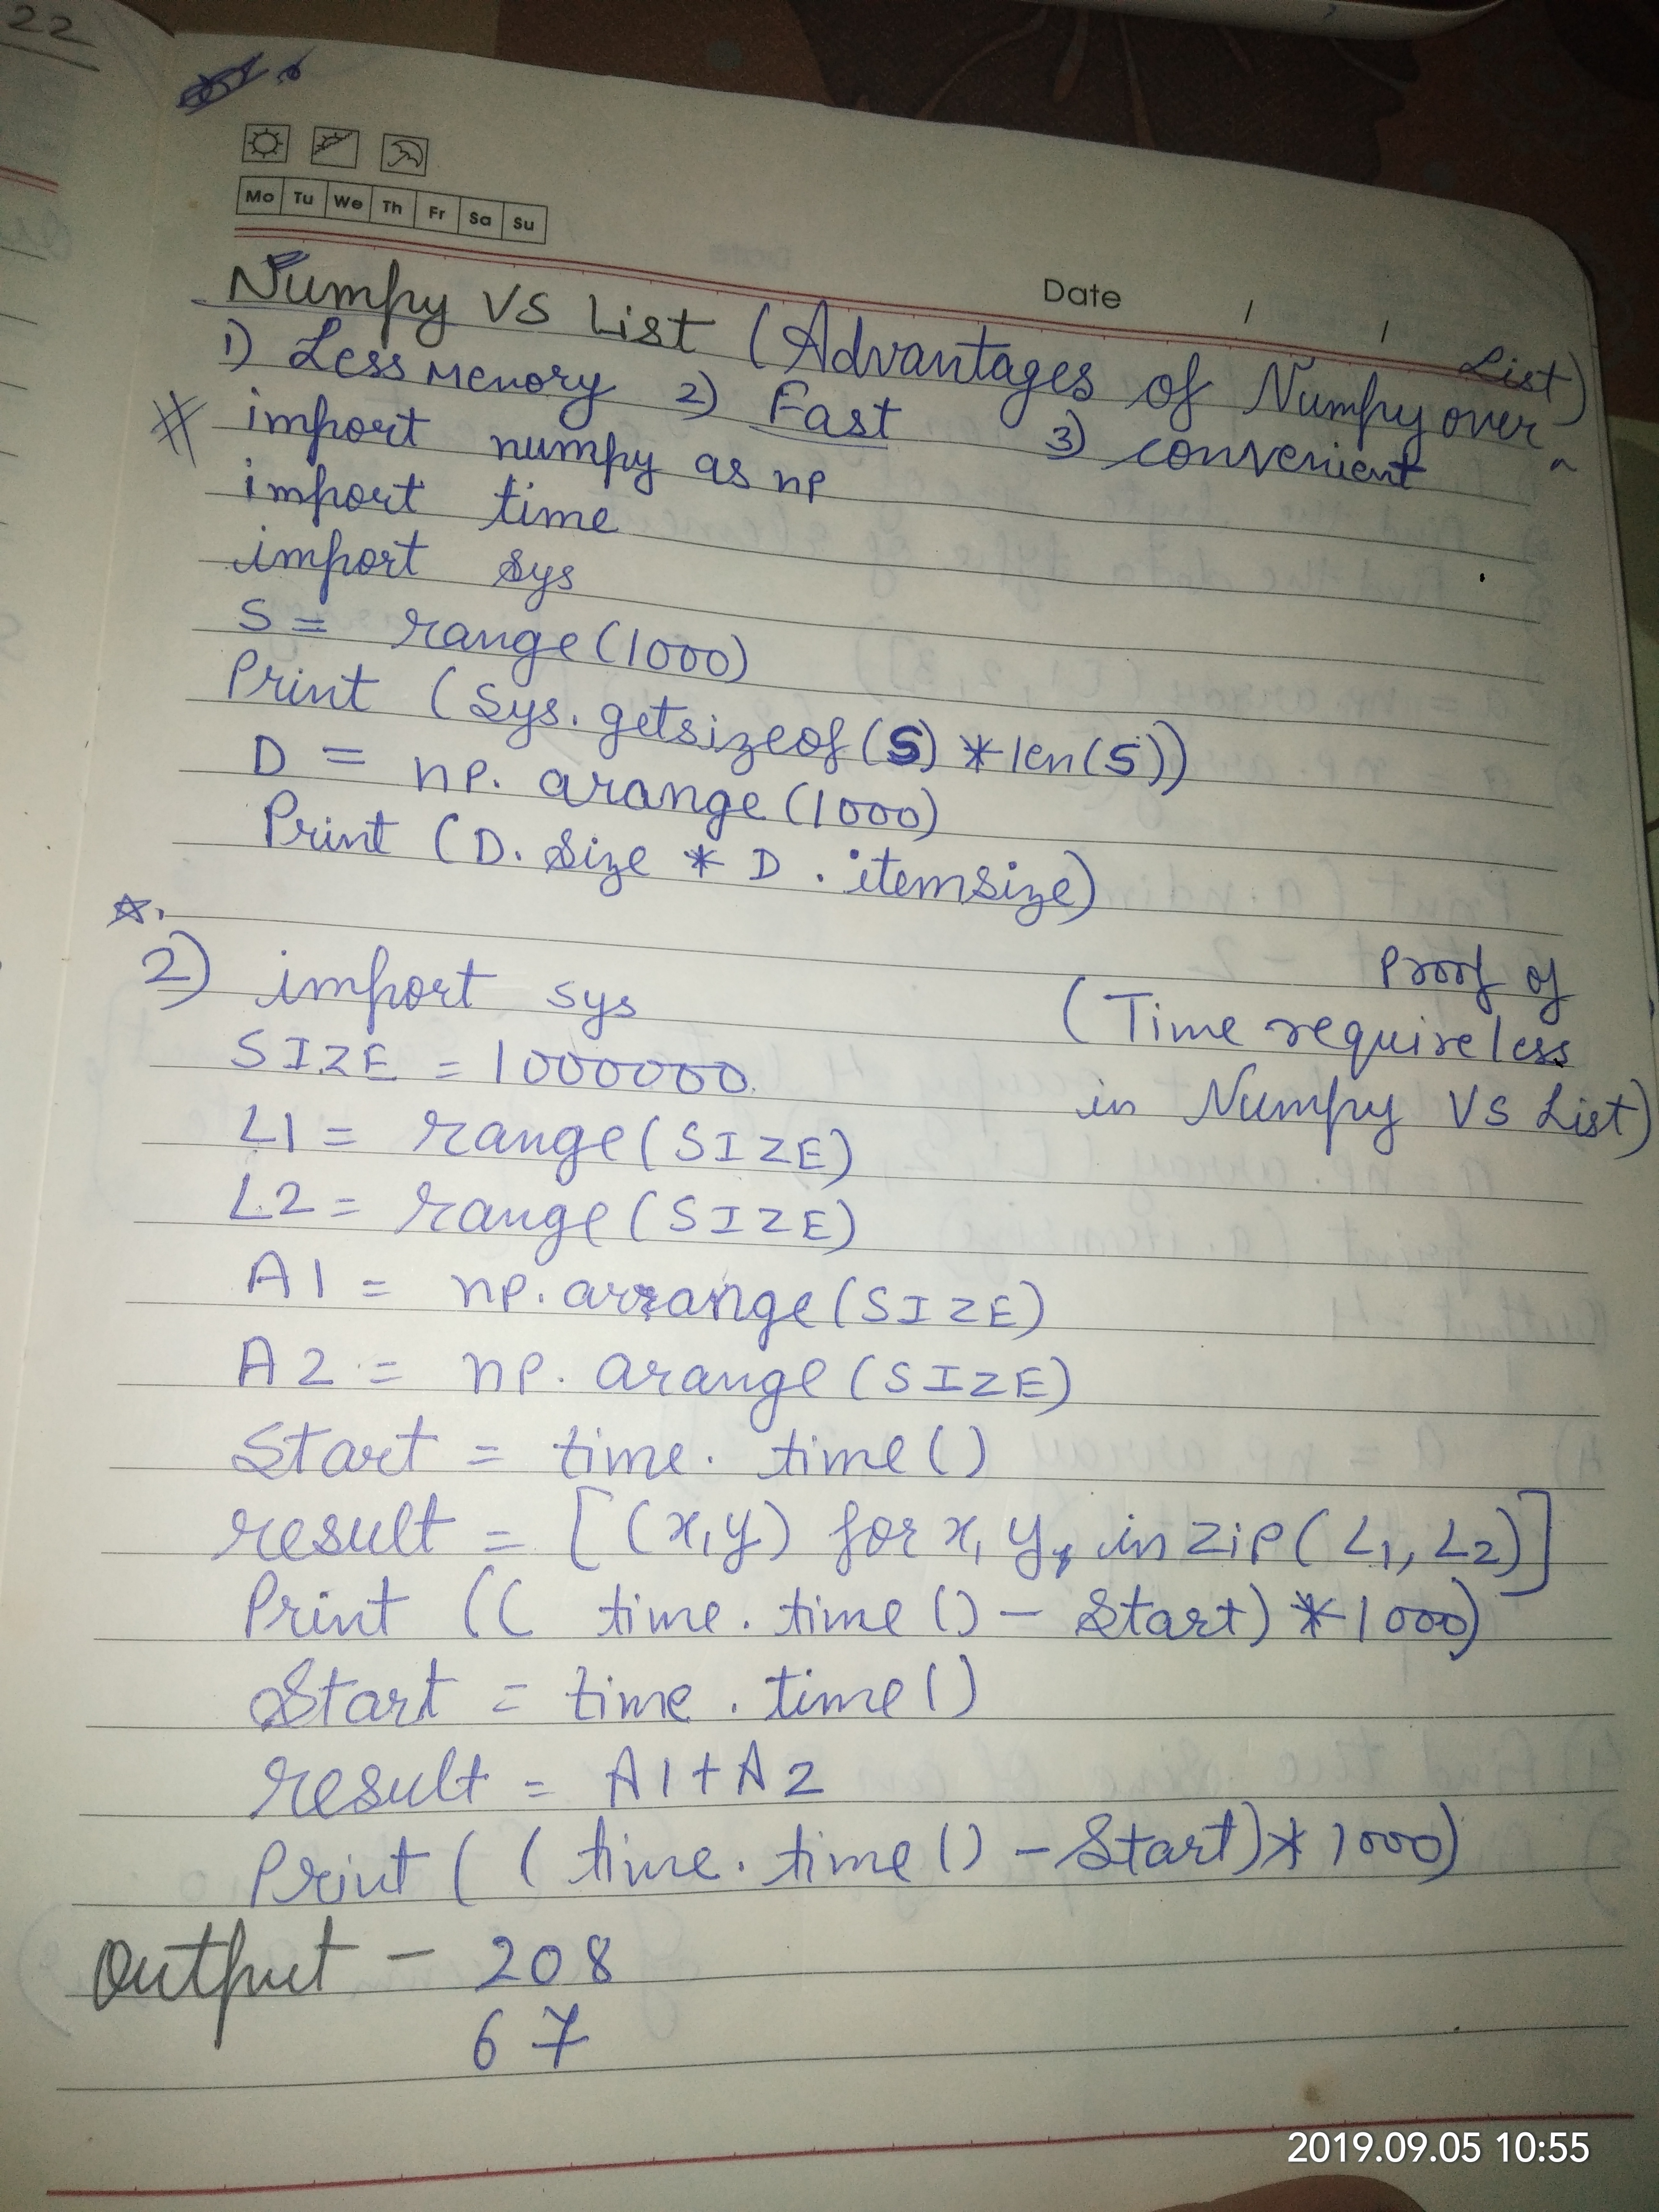 22
Mo Tu We Th Fr Sa Su
Date / /
Numpy VS List (Advantages of Numpy over List)
1) Less Memory 2) Fast 3) convenient
# import numpy as np
import time
import sys
S = range(1000)
Print (sys.getsizeof(S) * len(S))
D = np.arange(1000)
Print (D.size * D.itemsize)
2) import sys
(Proof of
Time require less
in Numpy VS List)
SIZE = 1000000
L1 = range(SIZE)
L2 = range(SIZE)
A1 = np.arrange(SIZE)
A2 = np.arange(SIZE)
Start = time.time()
result = [(x,y) for x, y, in zip(L1, L2)]
Print ((time.time() - Start) *1000)
Start = time.time()
result = A1+A2
Print ((time.time() - Start)*1000)
Output - 208
67
2019.09.05 10:55